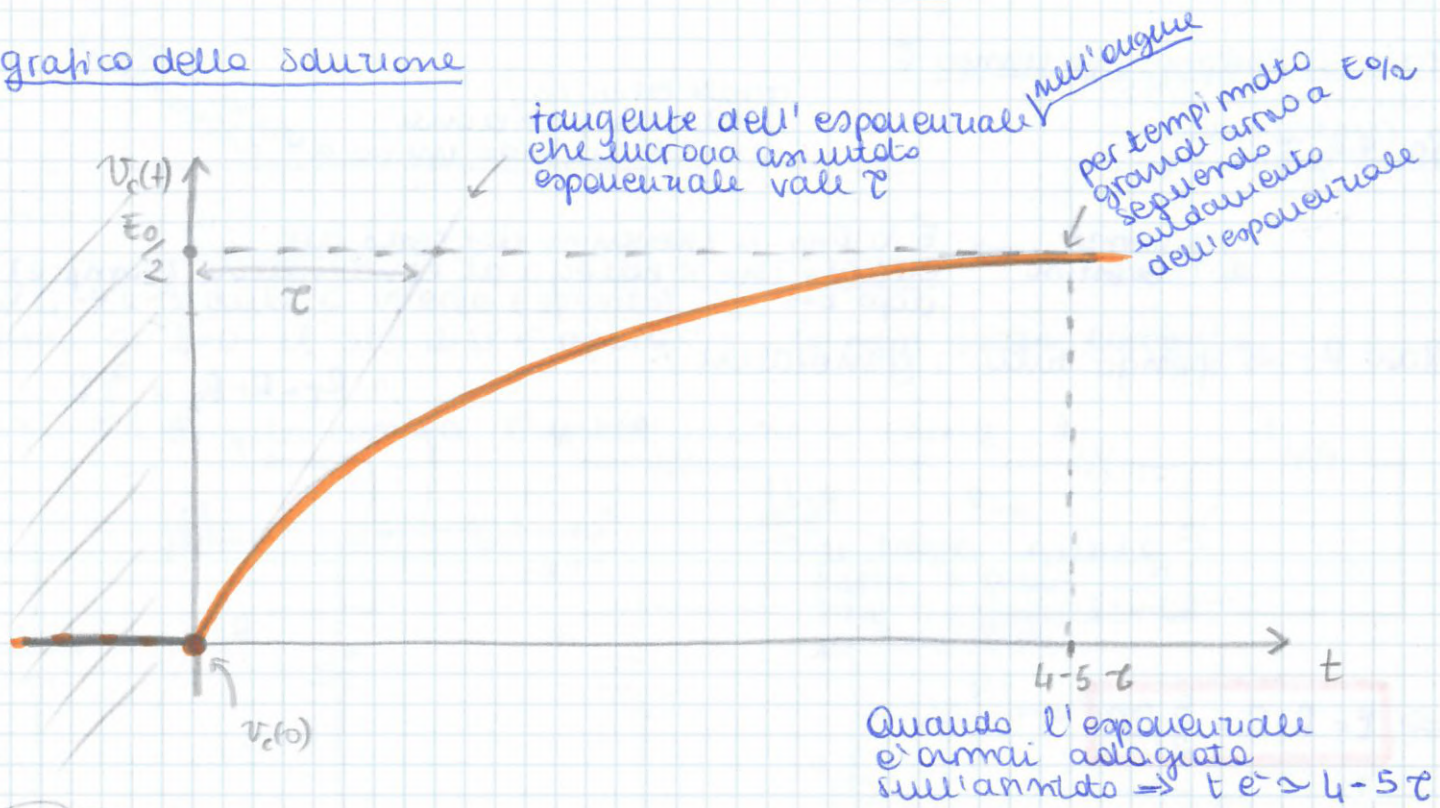 grafico della soluzione
tangente dell'esponenziale nell'origine
che incrocia asintoto
esponenziale vale τ
per tempi molto
grandi arrivo a E0/2
seguendo
andamento
dell'esponenziale
vc(t)
E0/2
τ
vc(0)
4-5 τ
t
Quando l'esponenziale
è ormai adagiato
sull'asintoto => t è ≃ 4-5 τ